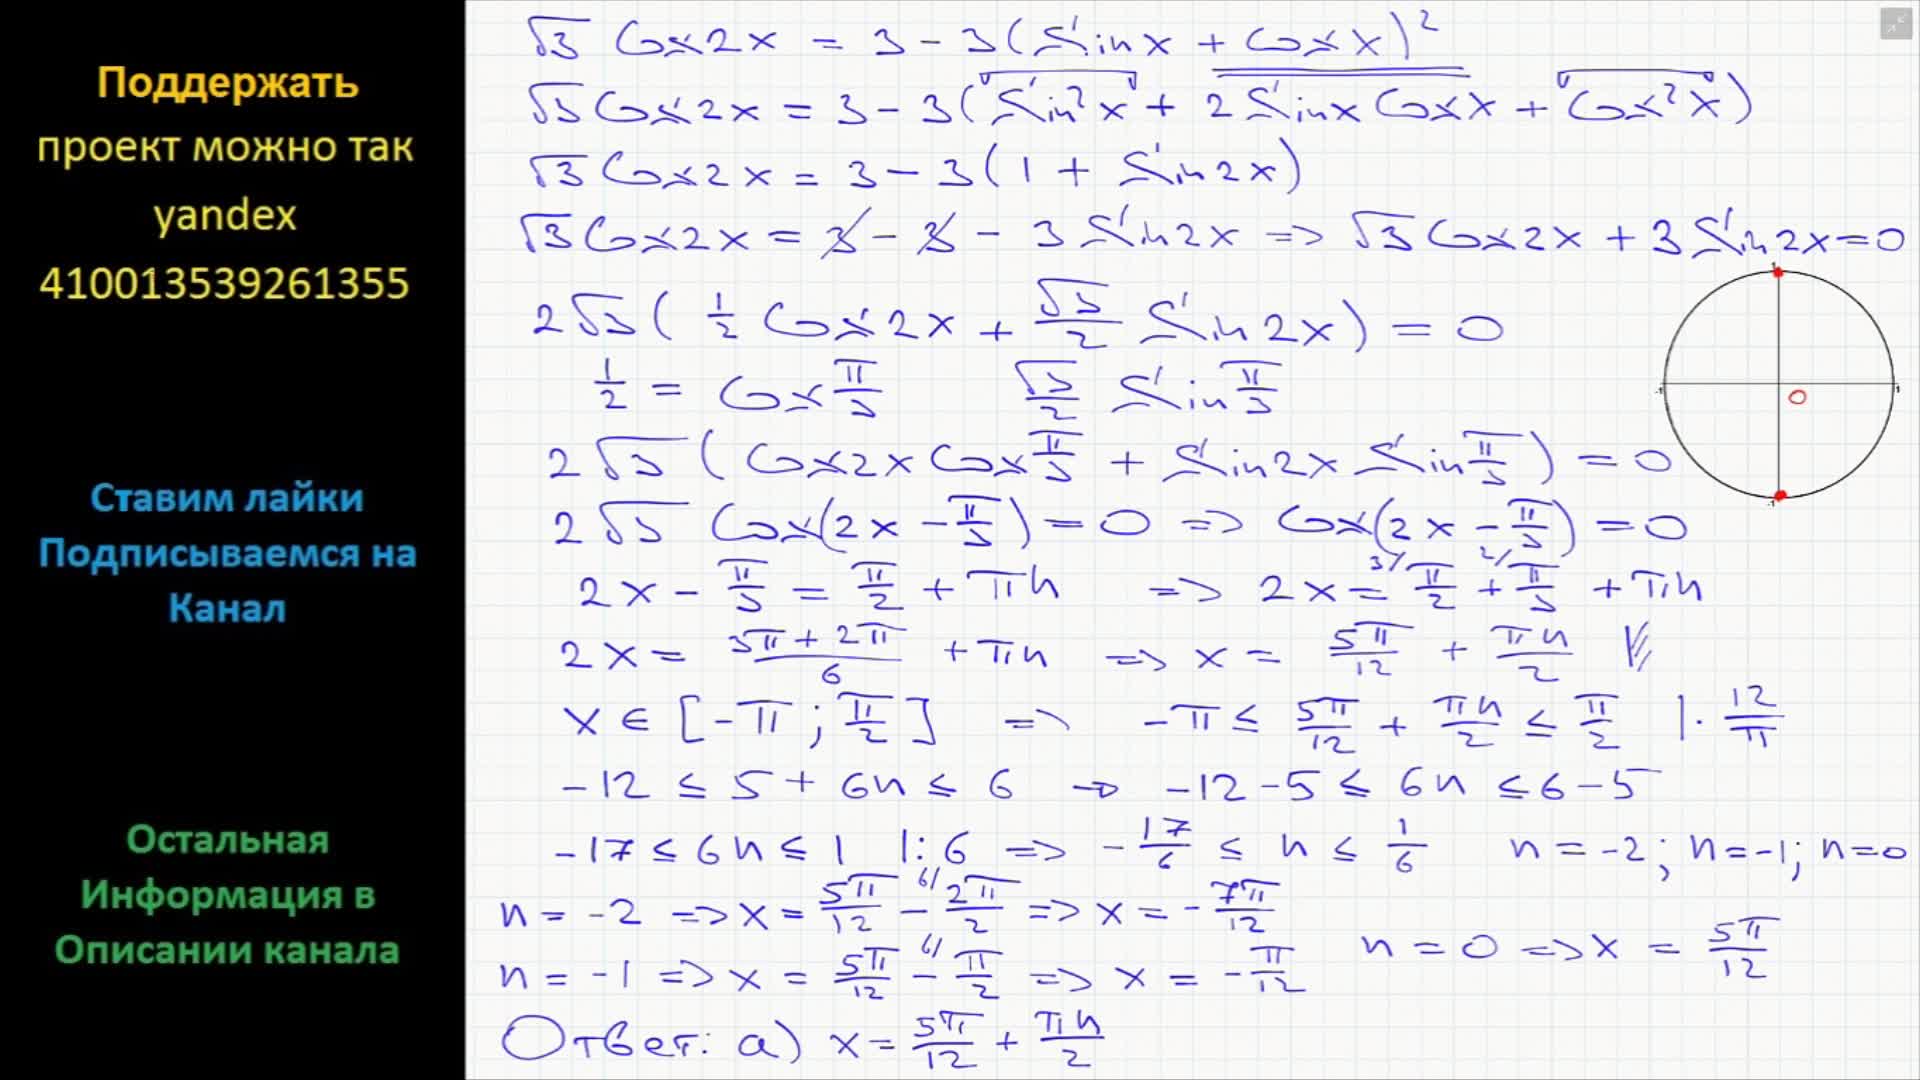 Поддержать
проект можно так
yandex
410013539261355
Ставим лайки
Подписываемся на
Канал
Остальная
Информация в
Описании канала
√3 Cos2x = 3 - 3(Sinx + Cosx)²
√3 Cos2x = 3 - 3(Sin²x + 2SinxCosx + Cos²x)
√3 Cos2x = 3 - 3(1 + Sin2x)
√3 Cos2x = 3 - 3 - 3Sin2x => √3 Cos2x + 3Sin2x = 0
2√3(1/2 Cos2x + √3/2 Sin2x) = 0
1/2 = Cos π/3 √3/2 Sin π/3
2√3(Cos2x Cos π/3 + Sin2x Sin π/3) = 0
2√3 Cos(2x - π/3) = 0 => Cos(2x - π/3) = 0
2x - π/3 = π/2 + πn => 2x = 3/ π/2 + 2/ π/3 + πn
2x = (3π + 2π)/6 + πn => x = 5π/12 + πn/2
x ∈ [-π; π/2] => -π ≤ 5π/12 + πn/2 ≤ π/2 | · 12/π
-12 ≤ 5 + 6n ≤ 6 → -12 - 5 ≤ 6n ≤ 6 - 5
-17 ≤ 6n ≤ 1 |: 6 => -17/6 ≤ n ≤ 1/6 n = -2; n = -1; n = 0
n = -2 => x = 5π/12 - 6/ 2π/2 => x = -7π/12
n = -1 => x = 5π/12 - 6/ π/2 => x = -π/12
n = 0 => x = 5π/12
Ответ: а) x = 5π/12 + πn/2
1
-1
0
1
-1